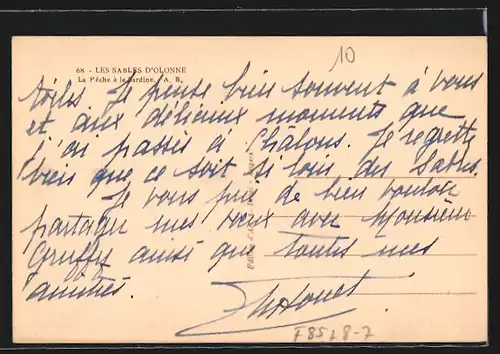 10
68 - LES SABLES D'OLONNE
La Pêche à la Sardine. A. B.
toiles. Je pense bien souvent à vous
et aux délicieux moments que
j'ai passés à Châlons. Je regrette
bien que ce soit si loin des Sables.
Je vous prie de bien vouloir
partager mes vœux avec Monsieur
Gruffy ainsi que toutes mes
amitiés.
F8518-7